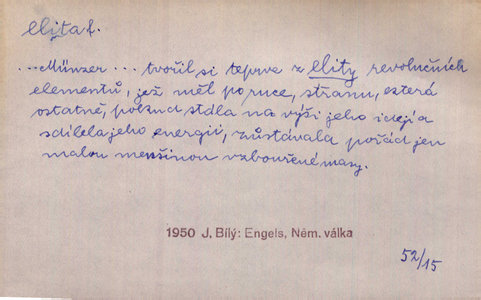 elita f.
...Münzer ... tvořil si teprve z elity revolučních
elementů, jež měl po ruce, stranu, která
ostatně, pokud stála na výši jeho idejí a
sdílela jeho energii, zůstávala pořád jen
malou menšinou vzbouřené masy.
1950 J. Bílý: Engels, Něm. válka
52/15